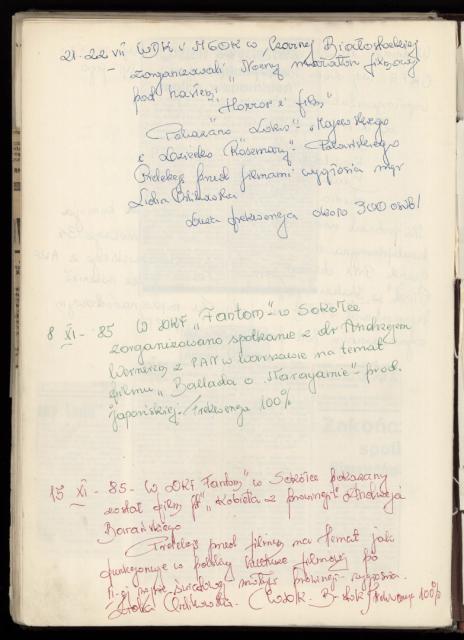 21-22 VII WDK i MGOK w Czarnej Białostockiej
- zorganizowali „Nocny maraton filmowy
pod hasłem „Horror i film"
Pokazano „Lokis" - Majewskiego
i Dziecko Rosemary" - Polańskiego
Prelekcję przed filmami wygłosiła mgr
Lidia
Duża frekwencja około 300 osób!
8 XI - 85 W DKF „Fantom" w Sokółce
zorganizowano spotkanie z dr Andrzejem
Wernerem z PAN w Warszawie na temat
filmu „Ballada o Narayamie" - prod.
japońskiej. Frekwencja 100%
15 XI - 85 - W DKF Fantom" w Sokółce pokazany
został film pt „Kobieta z prowincji" Andrzeja
Barańskiego
Prelekcję przed filmem na temat jak
funkcjonuje w polskiej kulturze filmowej po
II-ej wojnie światowej mit prowincji - wygłosiła
(WDK. B-stok) Frekwencja 100%
Zakońc